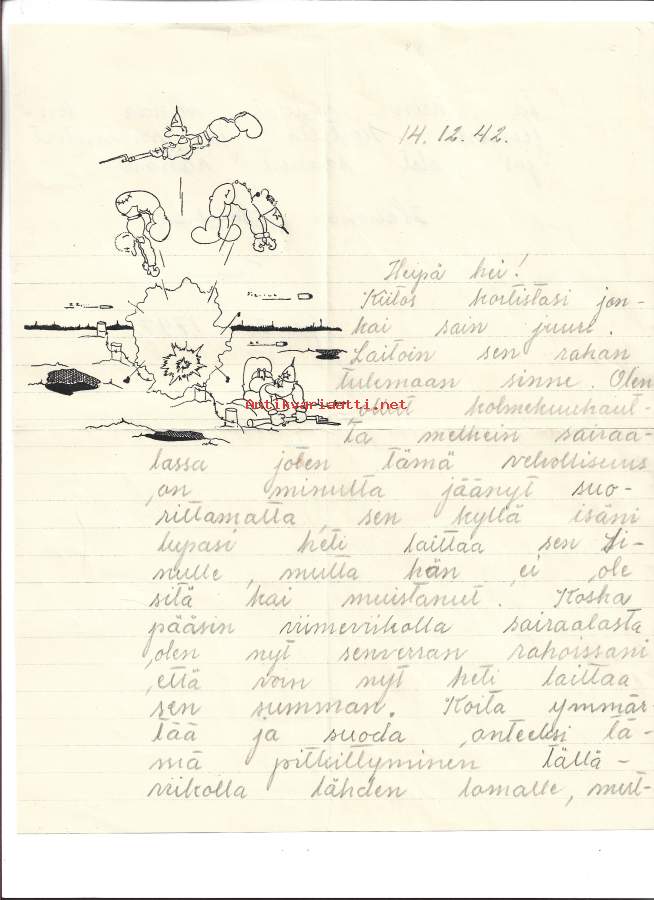 14.12.42.
Heipä hei!
Kiitos kortistasi jon-
kai sain juuri.
Laitoin sen rahan
tulemaan sinne. Olen
Antikvariaatti.net
ollut kolmekuukaut-
ta melkein sairaa-
lassa joten tämä velvollisuus
on minulta jäänyt suo-
rittamatta, sen kyllä isäni
lupasi heti laittaa sen Si-
nulle, mutta hän ei ole
sitä kai muistanut. Koska
pääsin viimeviikolla sairaalasta
olen nyt senverran rahoissani
että voin nyt heti laittaa
sen summan. Koita ymmär-
tää ja suoda anteeksi tä-
mä pitkittyminen tällä-
viikolla lähden lomalle, mut-